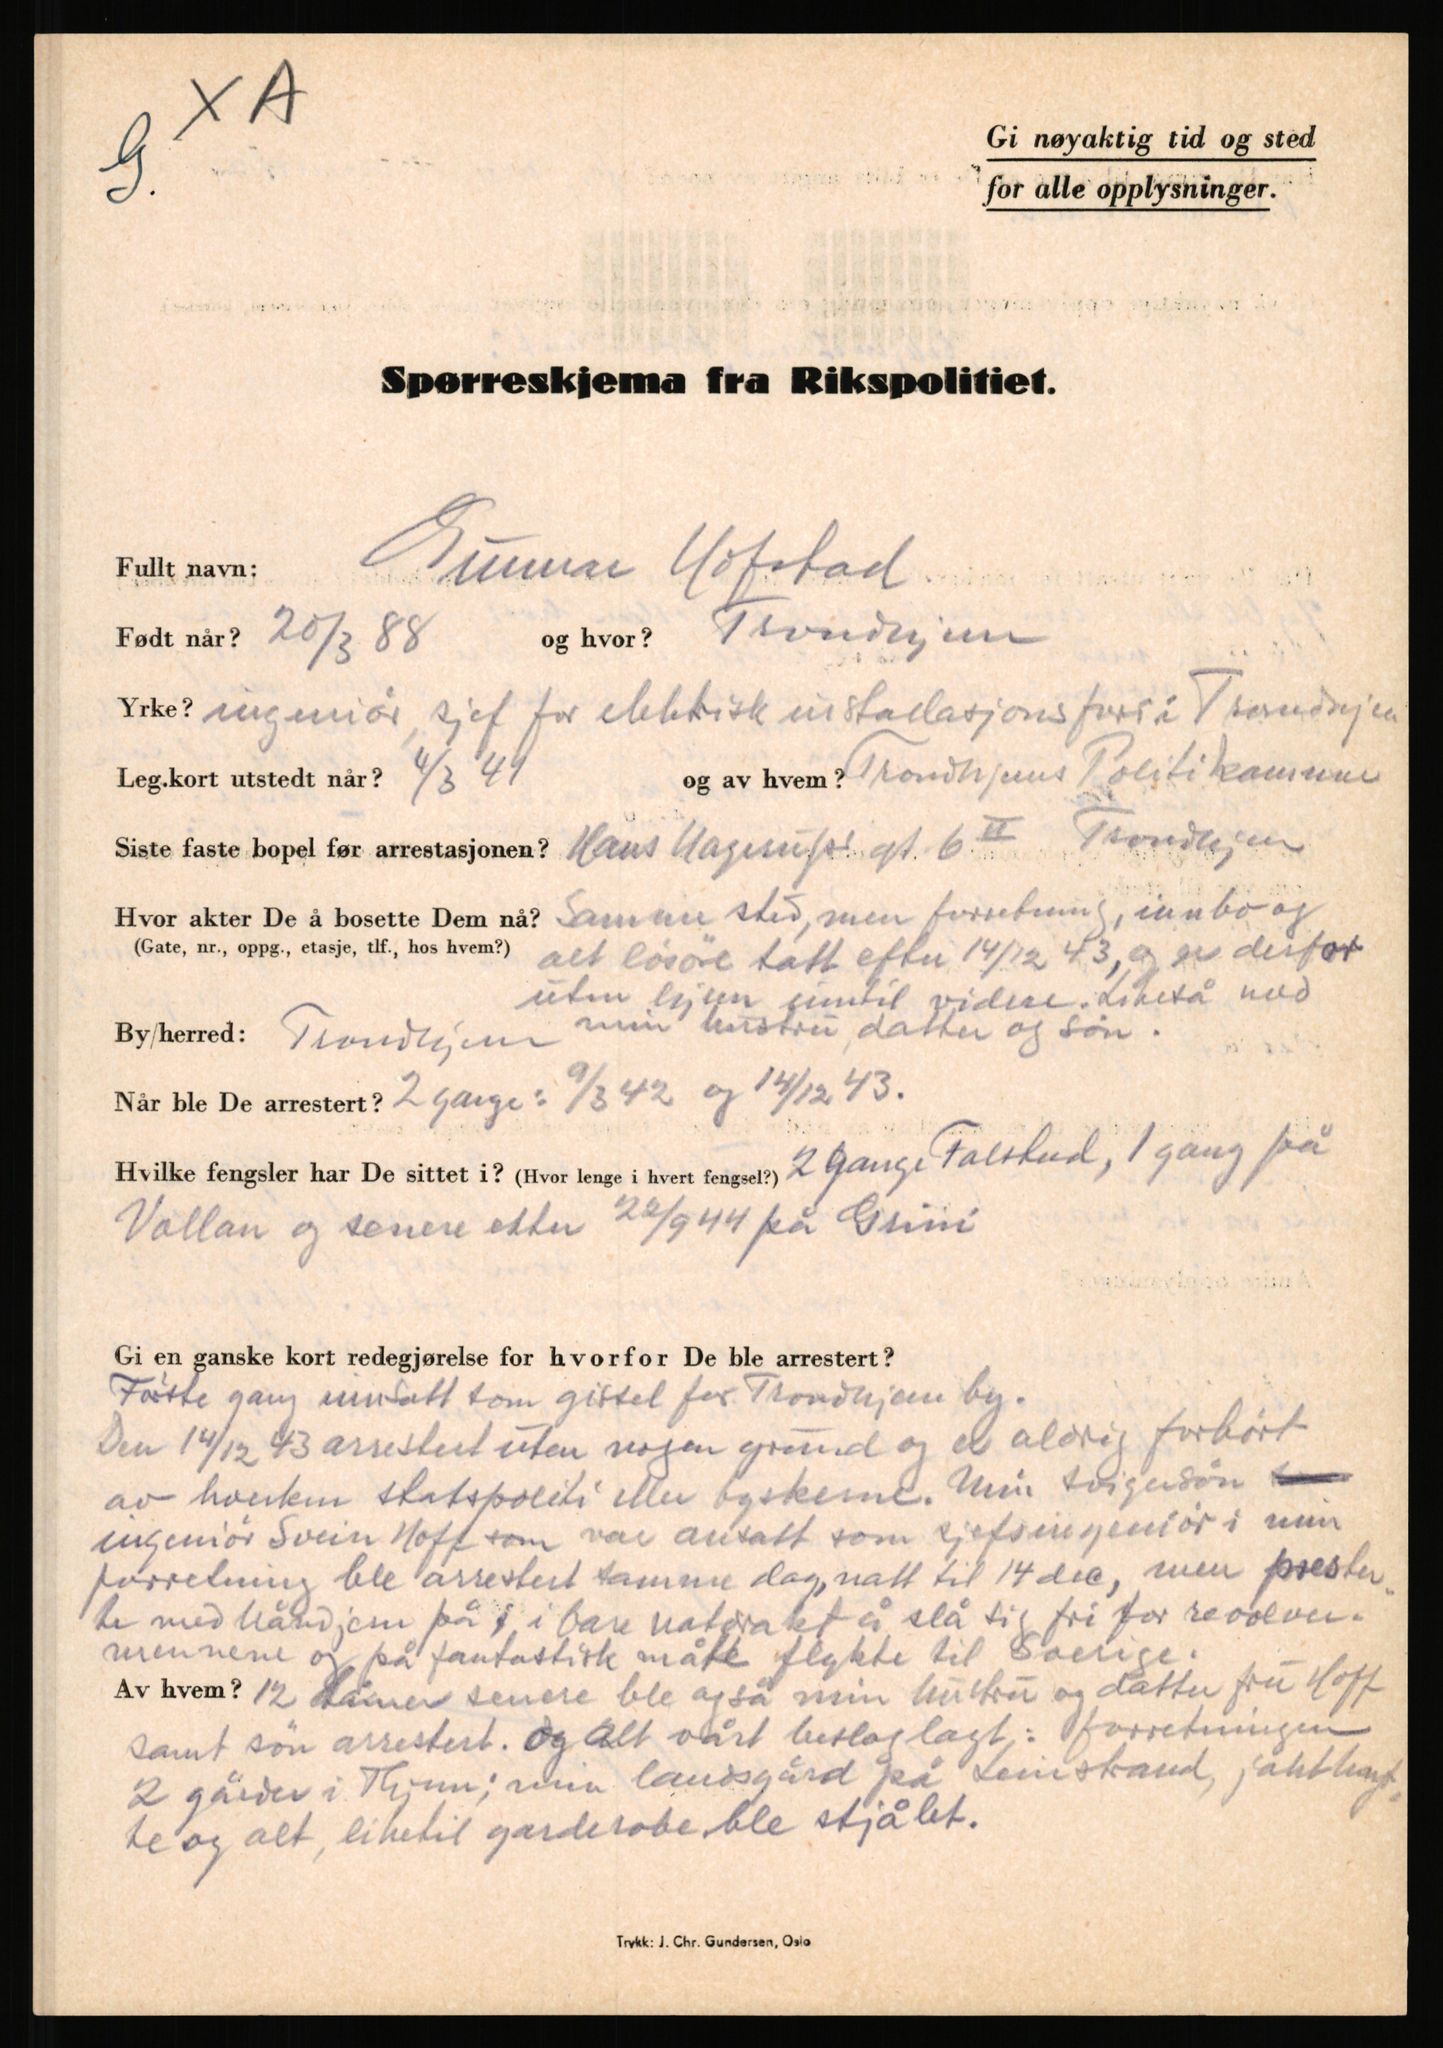 X A
G.
Gi nøyaktig tid og sted
for alle opplysninger.
Spørreskjema fra Rikspolitiet.
Fullt navn: Gunnar Hofstad
Født når? 20/3 88 og hvor? Trondhjem
Yrke? ingeniör, sjef for elektrisk installasjonsforr i Trondhjem
Leg.kort utstedt når? 4/3 41 og av hvem? Trondhjems Politikammer
Siste faste bopel før arrestasjonen? Hans Hagerups gt. 6 II Trondhjem
Hvor akter De å bosette Dem nå? Samme sted, men forretning, innbo og
(Gate, nr., oppg., etasje, tlf., hos hvem?) alt lösöre tatt efter 14/12 43, og er derfor
uten hjem inntil videre. Likeså med
By/herred: Trondhjem min hustru, datter og sön.
Når ble De arrestert? 2 gange: 9/3 42 og 14/12 43.
Hvilke fengsler har De sittet i? (Hvor lenge i hvert fengsel?) 2 gange Falstad, 1 gang på
Vollan og senere etter 22/9 44 på Grini
Gi en ganske kort redegjørelse for hvorfor De ble arrestert?
Förste gang innsatt som gissel for Trondhjem by.
Den 14/12 43 arrestert uten nogen grund og er aldrig forhört
av hverken statspoliti eller tyskerne. Min svigersön
ingeniör Svein Hoff som var ansatt som sjefsingeniör i min
forretning ble arrestert samme dag, natt til 14 dec, men
te med håndjern på, i bare natdrakt å slå sig fri for revolver-
mennene og på fantastisk måte flykte til Sverige.
Av hvem? 12 timer senere ble også min hustru og datter fru Hoff
samt sön arrestert. Og alt vårt beslaglagt: forretningen
2 gårder i Thjem; min landsgård på Leinstrand, jakthyt-
te og alt, liketil garderobe ble stjålet.
Trykk: J. Chr. Gundersen, Oslo